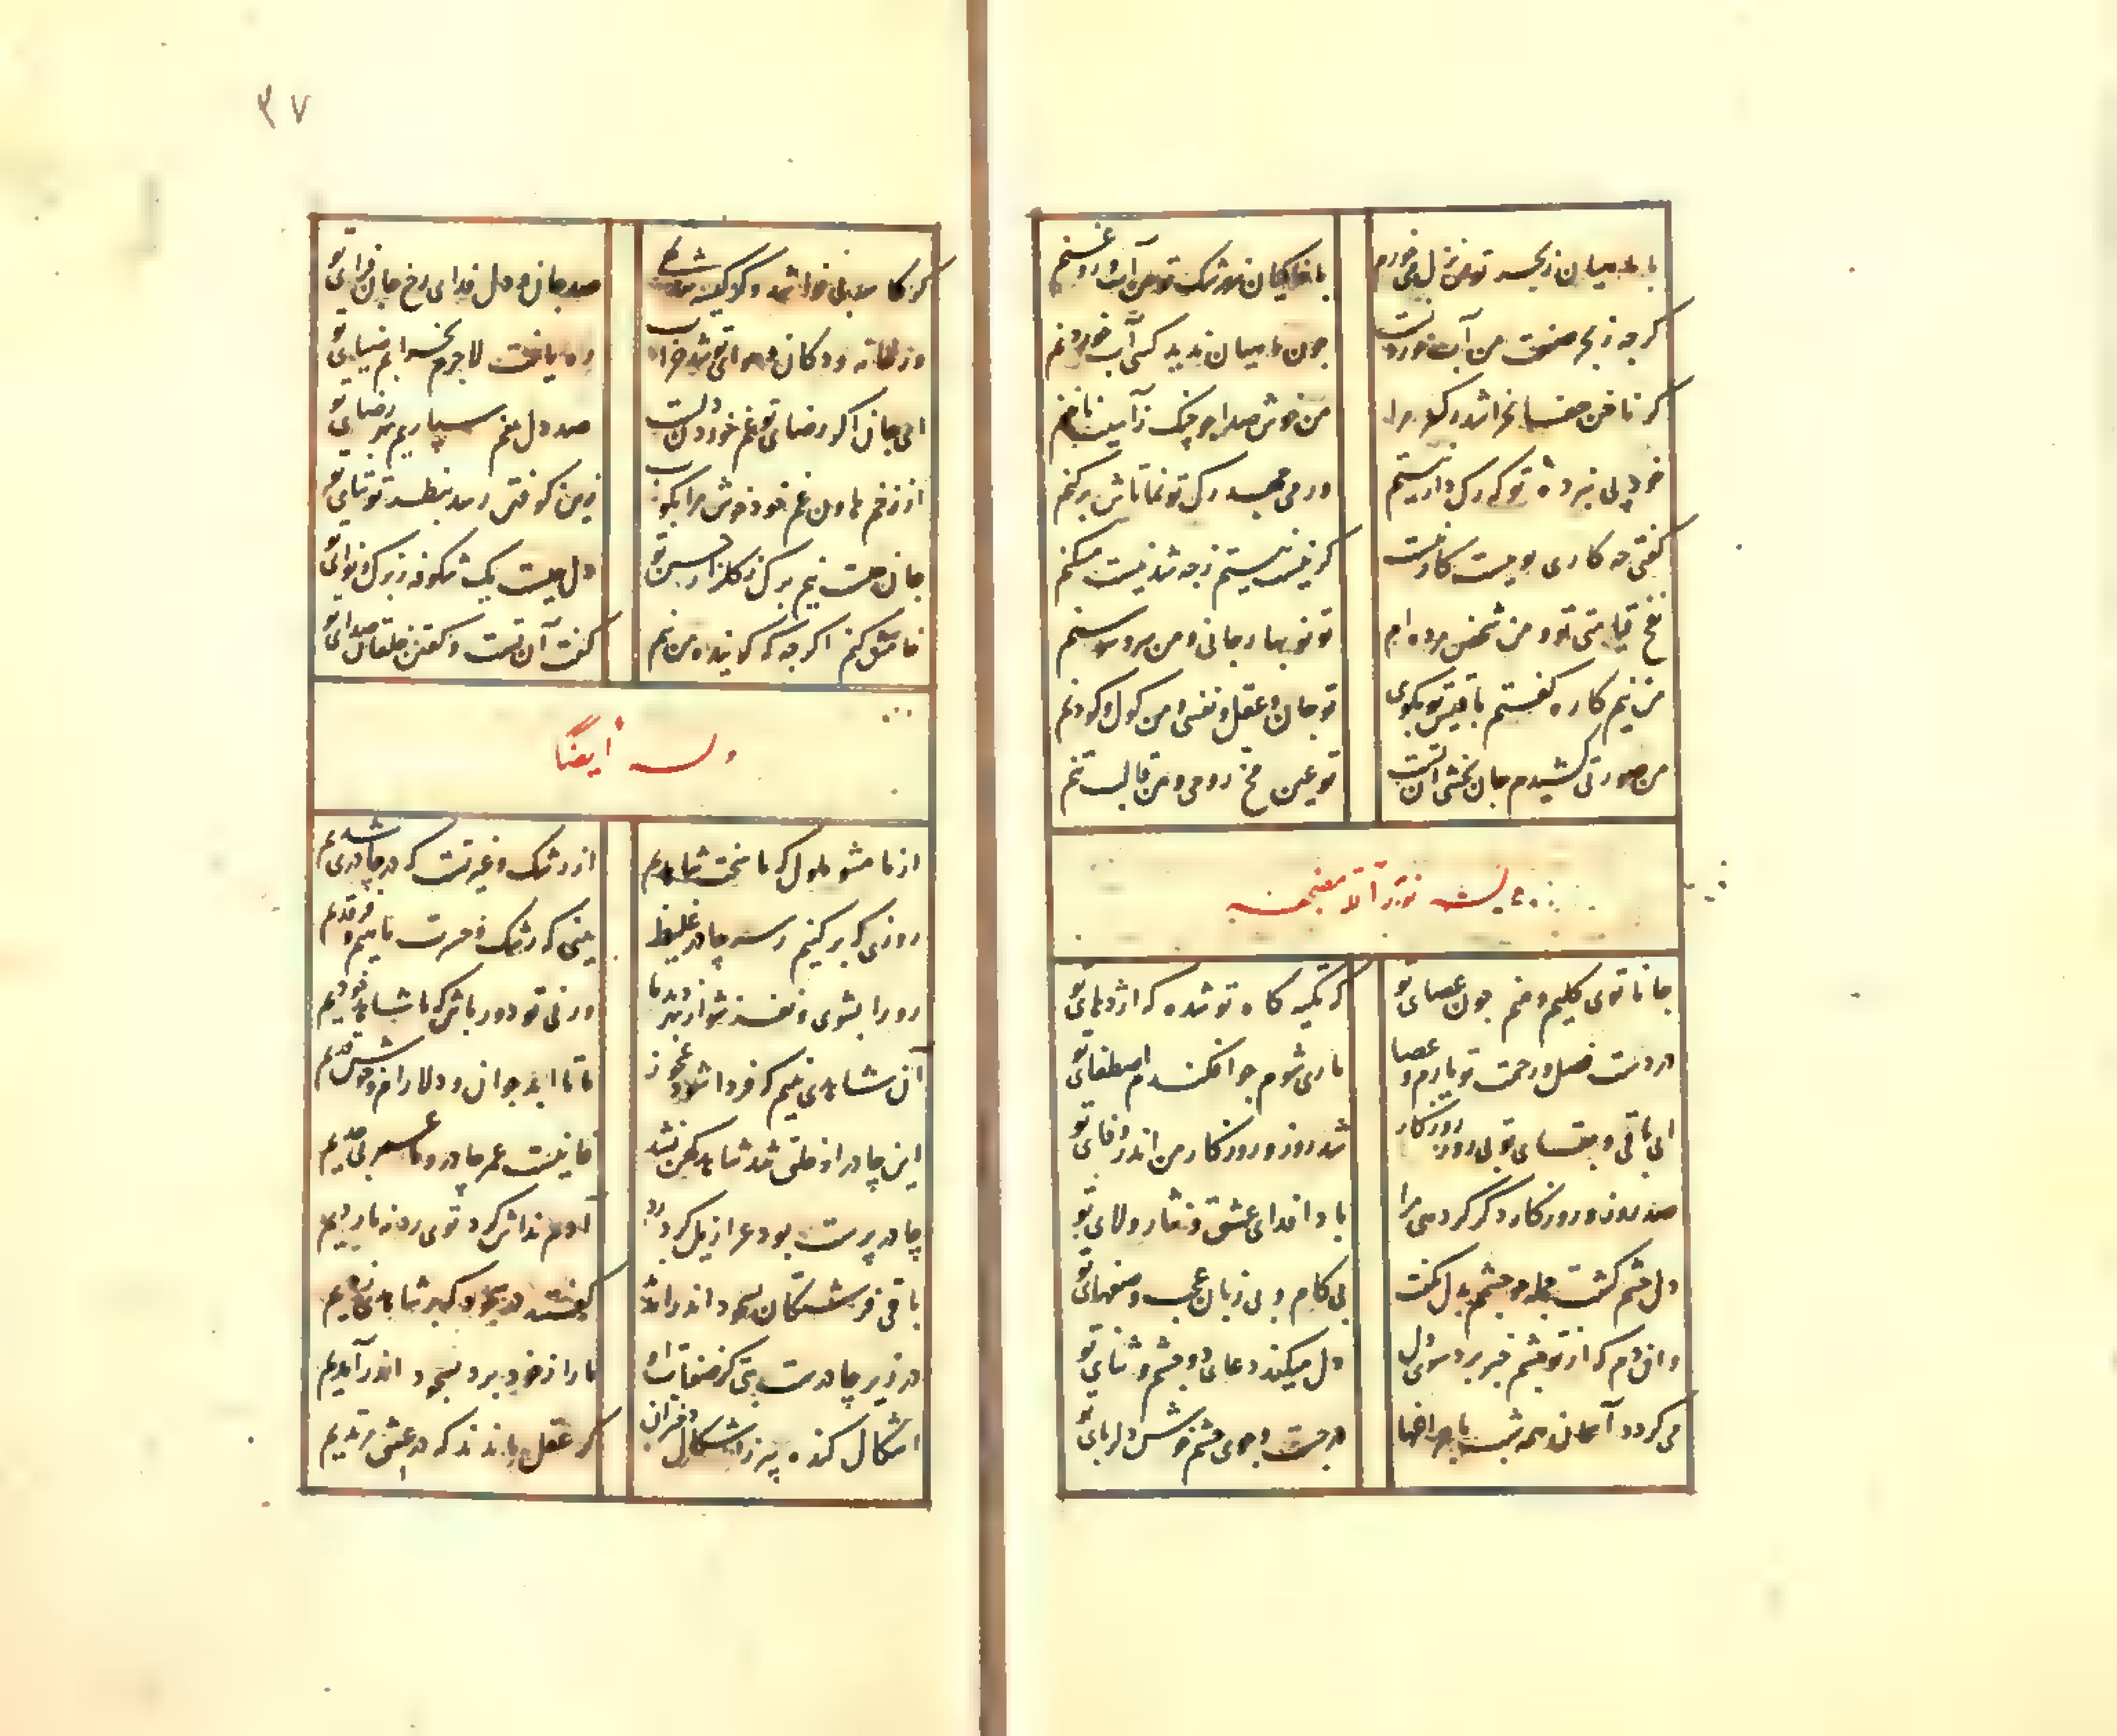 با ماهیان ز بحر تو من نزل می‌خورم
با خاکیان ز رشک تو من آب و روغنم
کرچه ز بحر صنعت من آب خوردنست
چون ماهیان ندید کسی آب خوردنم
کر ناخن جفا بخراشد رک مرا
من خوش صدا چو چنک ز آسیب ناخنم
خود پی نبرده تو که رک دار نیستم
ور می‌جهد رکی تو نما تاش برکنم
کفتی چه کاری بو نیست کار نیست
کر نیستم ز چه شد نیست مسکنم
نفخ قیامتی تو و من شخص مرده‌ام
تو نوبهار جانی و من سرو سوسنم
من نیم کاره کفتم باقیش تو بکوی
تو جان و عقل و نفسی و من کول و کودنم
من صورتی کشیدم جان بخشی آن تست
تو عین مخ روحی و من قالب تنم
جانا توی کلیم و منم چون عصای تو
که تکیه کاه تو شده که اژدهای تو
در دست فضل و رحمت تو یارم و عصا
ماری شوم چو افکندم اصطفای تو
ای باقی و بقای تو بی روز و روزکار
شد روز و روزکار من اندر وفای تو
صد روز و روزکار دکر کر دهی مرا
بادا فدای عشق و نثار ولای تو
دل چشم کشت جمله چو چشمم بدل بکفت
بی کام و بی زبان عجب و صفهای تو
زان دم که از تو چشم خبر برد سوی دل
دل میکند دعای دو چشم و ثنای تو
می کردد آسمان همه شب با چراغها
در جست و جوی چشم خوش دلربای تو
۳۷
کر کاسه بی‌نوا شد ور کیسه
صد جان و دل فدای رخ جان‌فزای تو
ور خانه و دکان ز هوای تو شد خراب
ره یافت لاجرم بخرابم ضیای تو
ای جان اکر رضای تو غم خوردن دلست
صد دل بغم سپارم بهر رضای تو
از زخم هاون غم خود خوش مرا بکوب
زین کوفتن رسد بنظر توتیای تو
جان چیست نیم برک ز کلزار حسن تو
دل چیست یک شکوفه ز برک و نوای تو
خامش کنم اکرچه که کوینده من نیم
کفت آن تست و کفتن خلقان صدای تو
وله أیضًا
از ما مشو ملول که ما سخت شاهدیم
از رشک و غیرتست که در چادری شدیم
روزی که برکنیم ز سر چادر غلیظ
بینی که رشک و حسرت ماهیم و فرقدیم
رو را بشوی و نغز شو از بهر دید ما
ور نی تو دور باش که ما شاهد خودیم
آن شاهدی نه‌ایم که فردا شود عجوز
ما تا ابد جوان و دلارام و خوش قدیم
این چادر ار خلق شد شاهد کهن نشد
فانیست عمر چادر و ما عمر بی‌حدیم
چادر پرست بود عزازیل کرد رد
آدم نداش کرد توی رد نه ما ردیم
باقی فرشتکان بسجود اندر آمدند
کفتند در سجود که بر شاهدی زدیم
در زیر چادرست بتی کز صفات او
ما را ز خود ببرد بسجود اندر آمدیم
اشکال کنده پیر ز اشکال دختران
کر عقل ما نداند که در عشق مرتدیم